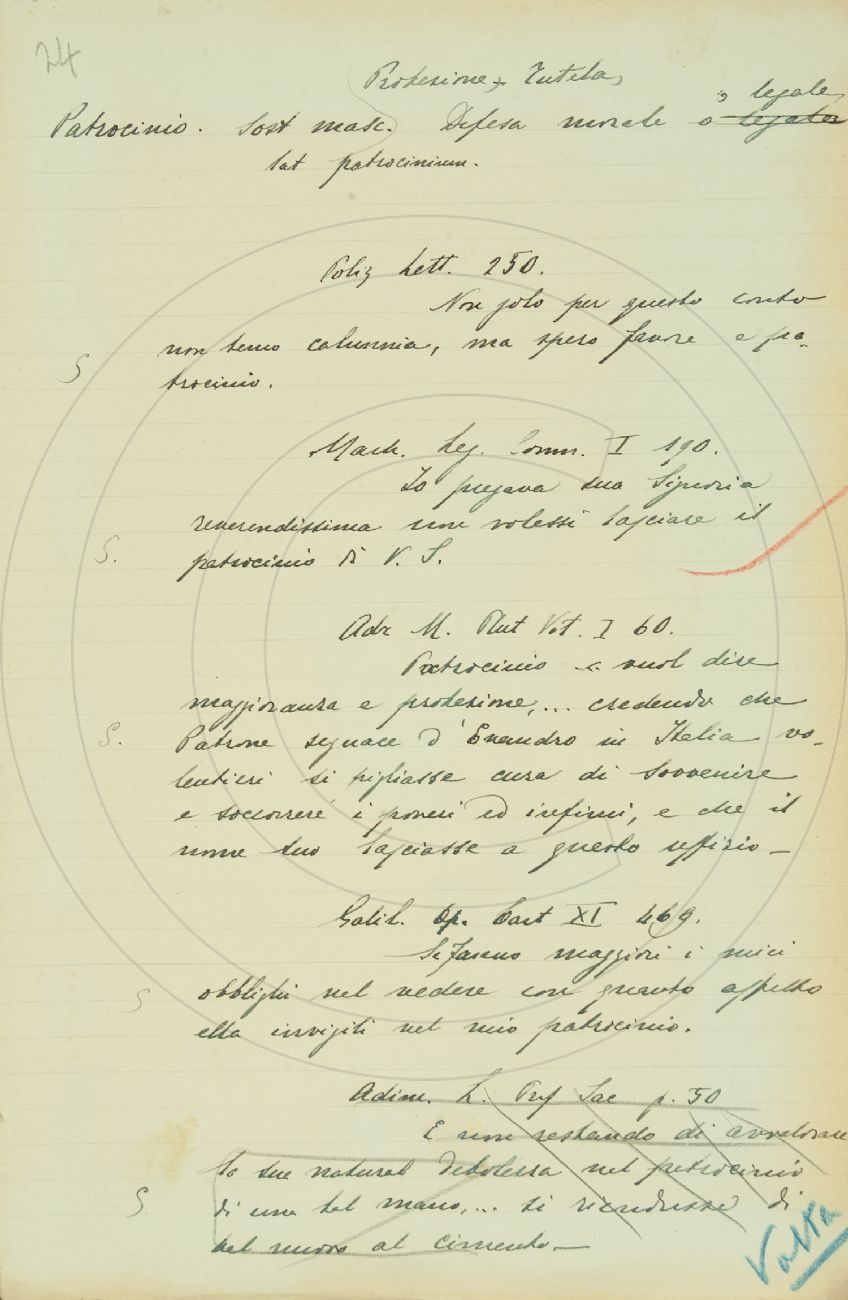 24
Protezione, Tutela,
o legale,
Patrocinio. Sost masc. Difesa morale o legale
lat patrocinium.
Poliz Lett. 250.
Non solo per questo conto
non temo calunnia, ma spero favore e pa-
S
trocinio.
Mach. Leg. Comm. I 190.
Io pregava sua Signoria
reverendissima non volessi lasciare il
S.
patrocinio di V. S.
Adr M. Plut Vit. I 60.
Patrocinio .. vuol dire
maggioranza e protezione,... credendo che
S.
Patrone seguace d'Evandro in Italia vo-
lentieri si pigliasse cura di sovvenire
e soccorrere i poveri ed infimi, e che il
nome suo lasciasse a questo uffizio —
Galil. Op. Cart XI 469.
Si fanno maggiori i miei
S
obblighi nel vedere con quanto affetto
ella invigili nel mio patrocinio.
Adim. L. Prf Sac p. 50
E non restando di avvalorare
la sue natural debolezza nel patrocinio
S.
di una tal mano,... si ricondusse di
bel nuovo al cimento —
Volta